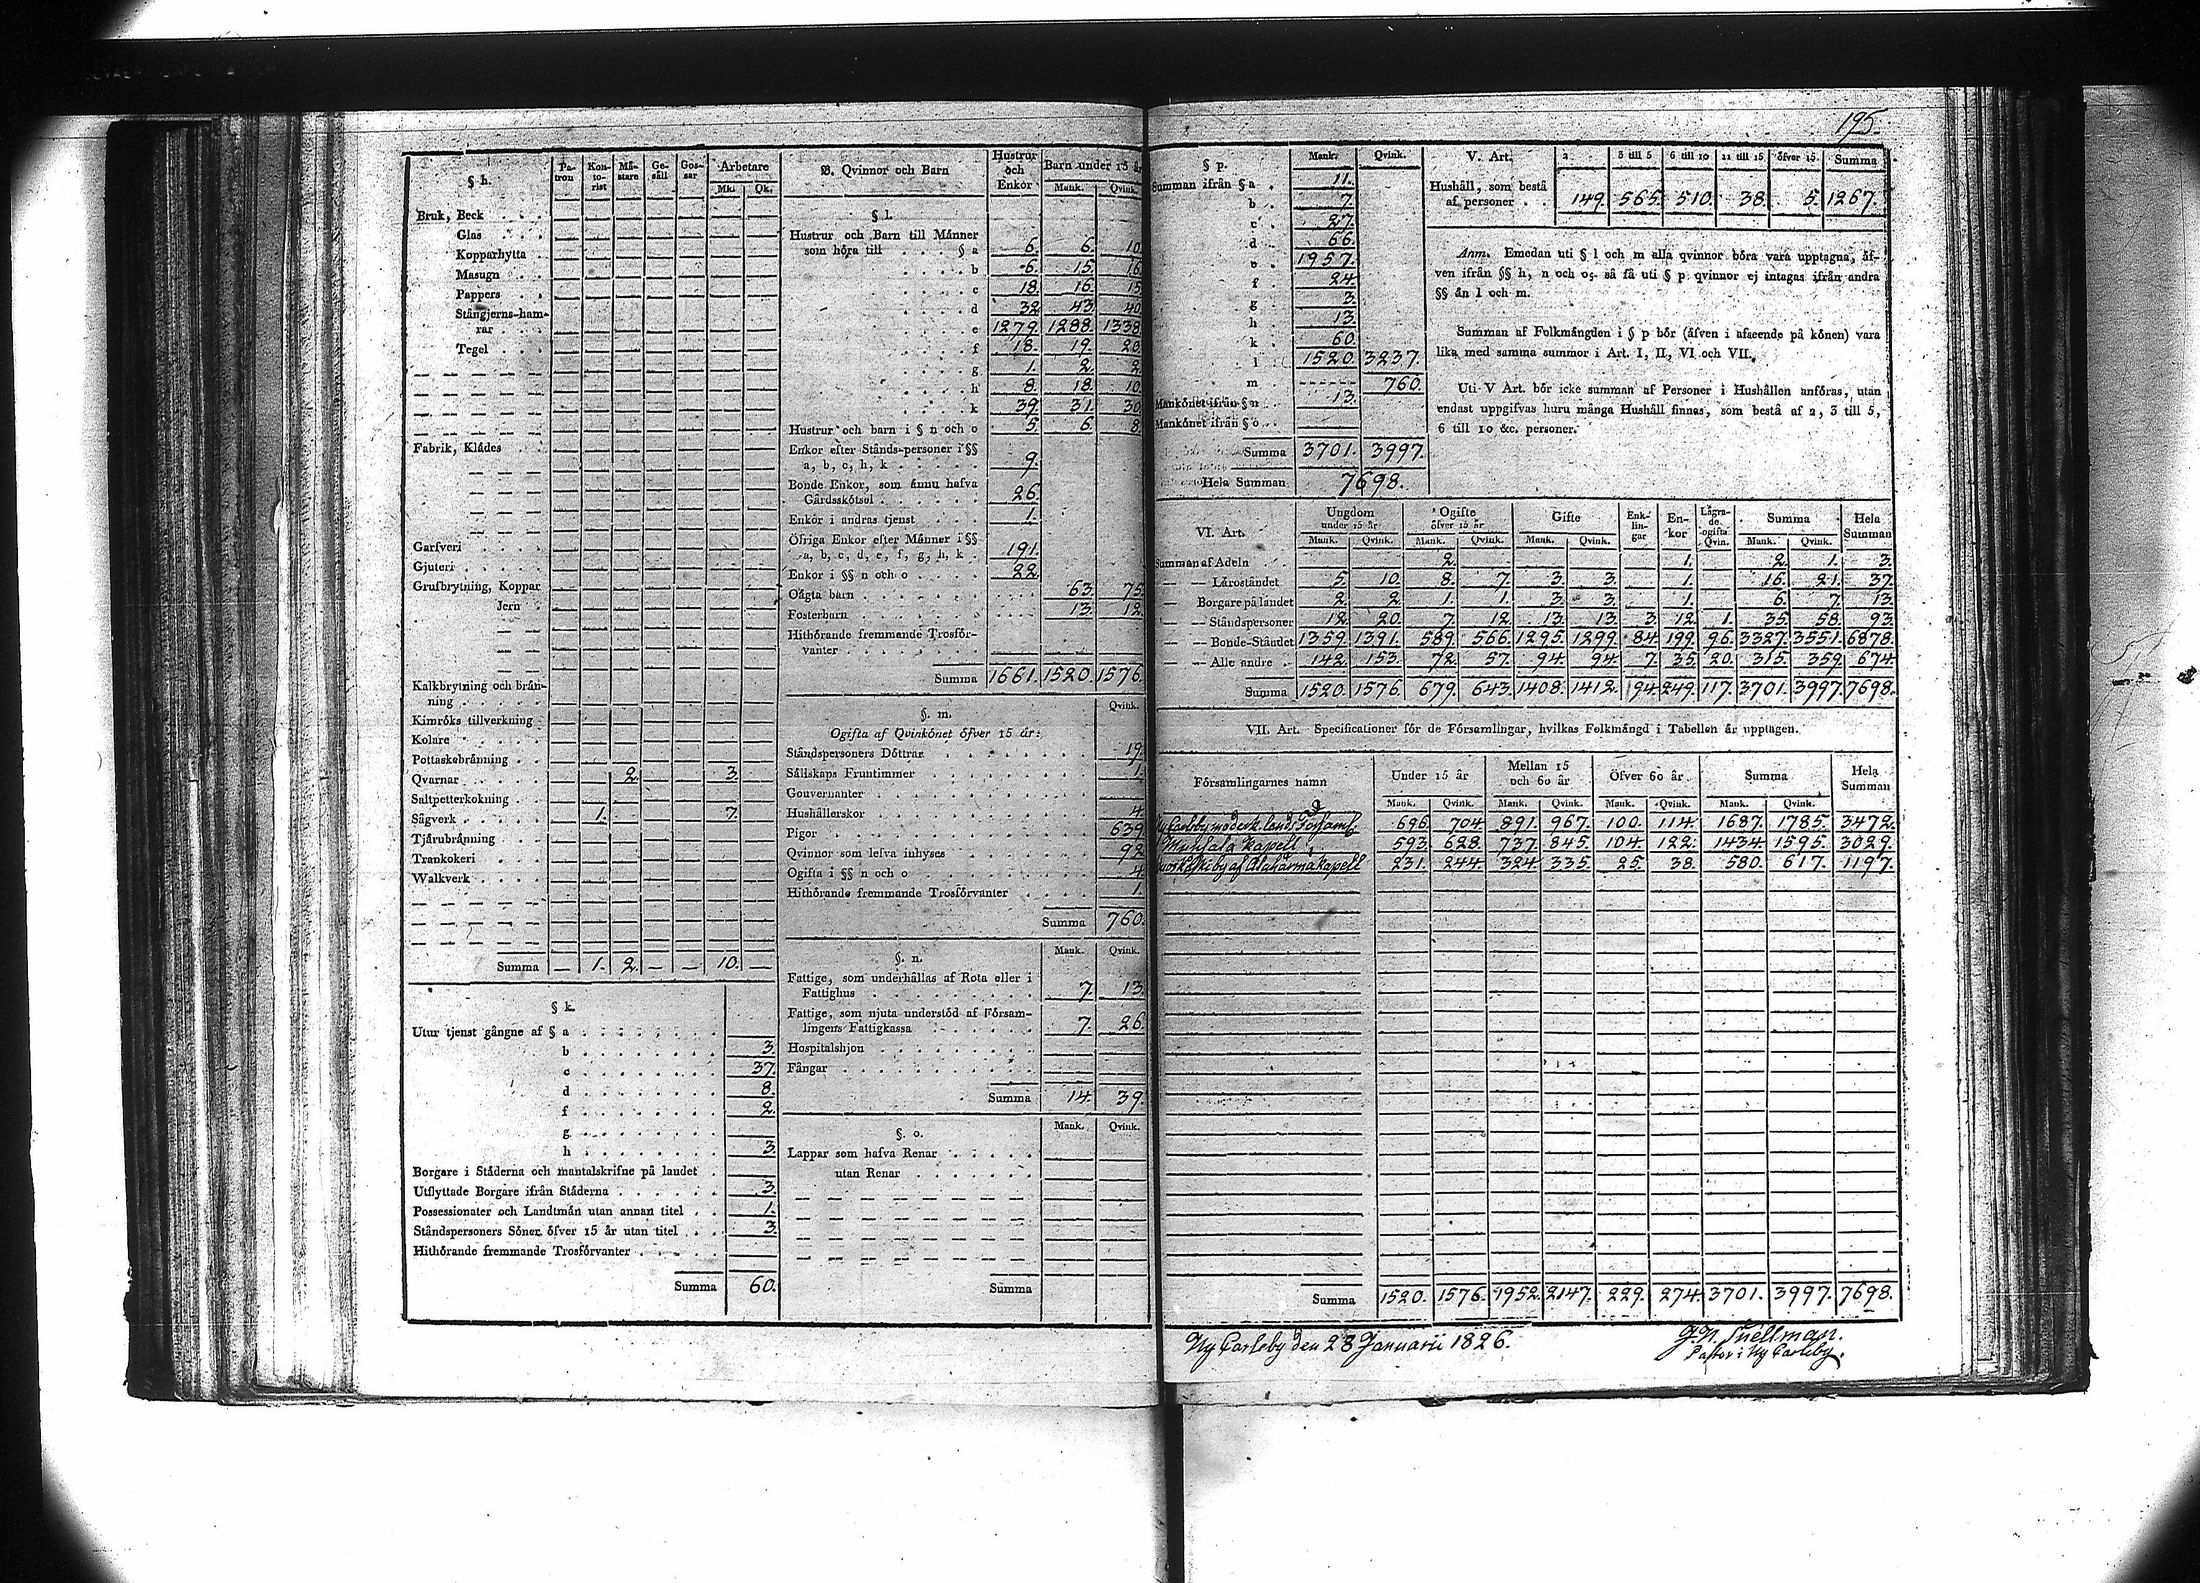 195
§ h. Patron Kontorist Måstare Gesåll Gossar Arbetare Mk. Qk.
Bruk, Beck
Glas
Kopparhytta
Masugn
Pappers
Stångjerns-hamrar
Tegel
Fabrik, Klådes
Garfveri
Gjuteri
Grufbrytning, Koppar
Jern
Kalkbrytning och brånning
Kimróks tillverkning
Kolare
Pottaskebrånning
Qvarnar 2. 3.
Saltpetterkokning
Sågverk 1. 7.
Tjårubrånning
Trankokeri
Walkverk
Summa — 1. 2. — — 10. —
§ k.
Utur tjenst gångne af § a
b 3.
c 37.
d 8.
f 2.
g
h 3.
Borgare i Ståderna och mantalskrifne på landet
Utflyttade Borgare ifrån Ståderna 3.
Possessionater och Landtmån utan annan titel 1.
Ståndspersoners Sóner ófver 15 år utan titel 3.
Hithórande fremmande Trosfórvanter
Summa 60.
B. Qvinnor och Barn Hustrur och Enkor Barn under 15 år
Mank. Qvink.
§ l.
Hustrur och Barn till Månner
som hóra till § a 6. 6. 10.
b 6. 15. 16.
c 18. 16. 15.
d 32. 43. 40.
e 1279. 1288. 1338.
f 18. 19. 20.
g 1. 2. 2.
h 8. 18. 10.
k 39. 31. 30.
Hustrur och barn i § n och o 5. 6. 8.
Enkor efter Stånds-personer i §§
a, b, c, h, k 9.
Bonde Enkor, som ånnu hafva
Gårdsskótsel 26.
Enkor i andras tjenst 1.
Ófriga Enkor efter Månner i §§
a, b, c, d, e, f, g, h, k 191.
Enkor i §§ n och o 22.
Oågta barn 63. 75.
Fosterbarn 13. 12.
Hithórande fremmande Trosfórvanter
Summa 1661. 1520. 1576.
§. m. Qvink.
Ogifta af Qvinkónet ófver 15 år:
Ståndspersoners Dóttrar 19.
Sållskaps Fruntimmer 1.
Gouvernanter
Hushållerskor 4.
Pigor 639.
Qvinnor som lefva inhyses 92.
Ogifta i §§ n och o 4.
Hithórande fremmande Trosfórvanter 1.
Summa 760.
§. n. Mank. Qvink.
Fattige, som underhållas af Rota eller i
Fattighus 7. 13.
Fattige, som njuta understód af Fórsamlingens
Fattigkassa 7. 26.
Hospitalshjon
Fångar
Summa 14. 39.
§. o. Mank. Qvink.
Lappar som hafva Renar
utan Renar
Summa
§ p. Mank. Qvink.
Summan ifrån § a 11.
b 7.
c 27.
d 66.
e 1957.
f 24.
g 3.
h 13.
k 60.
l 1520. 3237.
m 760.
Mankónet ifrån § n 13.
Mankónet ifrån § o
Summa 3701. 3997.
Hela Summan 7698.
V. Art. 2 3 till 5 6 till 10 11 till 15 ófver 15. Summa
Hushåll, som bestå
af personer 149. 565. 510. 38. 5. 1267.
Anm. Emedan uti § l och m alla qvinnor bóra vara upptagna, åfven
ifrån §§ h, n och o, så få uti § p qvinnor ej intagas ifrån andra
§§ ån l och m.
Summan af Folkmångden i § p bór (åfven i afseende på kónen) vara
lika med samma summor i Art. I, II, VI och VII.
Uti V Art. bór icke summan af Personer i Hushållen anfóras, utan
endast uppgifvas huru många Hushåll finnas, som bestå af 2, 3 till 5,
6 till 10 &c. personer.
VI. Art. Ungdom under 15 år Ogifte ófver 15 år Gifte Enklingar Enkor Lågrade ogifta Qvin. Summa Hela Summan
Mank. Qvink. Mank. Qvink. Mank. Qvink. Mank. Qvink.
Summan af Adeln 2. 1. 2. 1. 3.
— — Låroståndet 5. 10. 8. 7. 3. 3. 1. 16. 21. 37.
— Borgare på landet 2. 2. 1. 1. 3. 3. 1. 6. 7. 13.
— — Ståndspersoner 12. 20. 7. 12. 13. 13. 3. 12. 1. 35. 58. 93.
— — Bonde-Ståndet 1359. 1391. 589. 566. 1295. 1299. 84. 199. 96. 3327. 3551. 6878.
— — Alle andre 142. 153. 72. 57. 94. 94. 7. 35. 20. 315. 359. 674.
Summa 1520. 1576. 679. 643. 1408. 1412. 194. 249. 117. 3701. 3997. 7698.
VII. Art. Specificationer fór de Fórsamlingar, hvilkas Folkmångd i Tabellen år upptagen.
Fórsamlingarnes namn Under 15 år Mellan 15 och 60 år Ófver 60 år Summa Hela Summan
Mank. Qvink. Mank. Qvink. Mank. Qvink. Mank. Qvink.
Ny Carleby moderk. lands Församl. 696. 704. 891. 967. 100. 114. 1687. 1785. 3472.
Munsala Kapell 593. 628. 737. 845. 104. 122. 1434. 1595. 3029.
af Alahärmä kapell 231. 244. 324. 335. 25. 38. 580. 617. 1197.
Summa 1520. 1576. 1952. 2147. 229. 274. 3701. 3997. 7698.
Ny Carleby den 28 Januarii 1826.
J. N. Snellman.
Pastor i Ny Carleby.